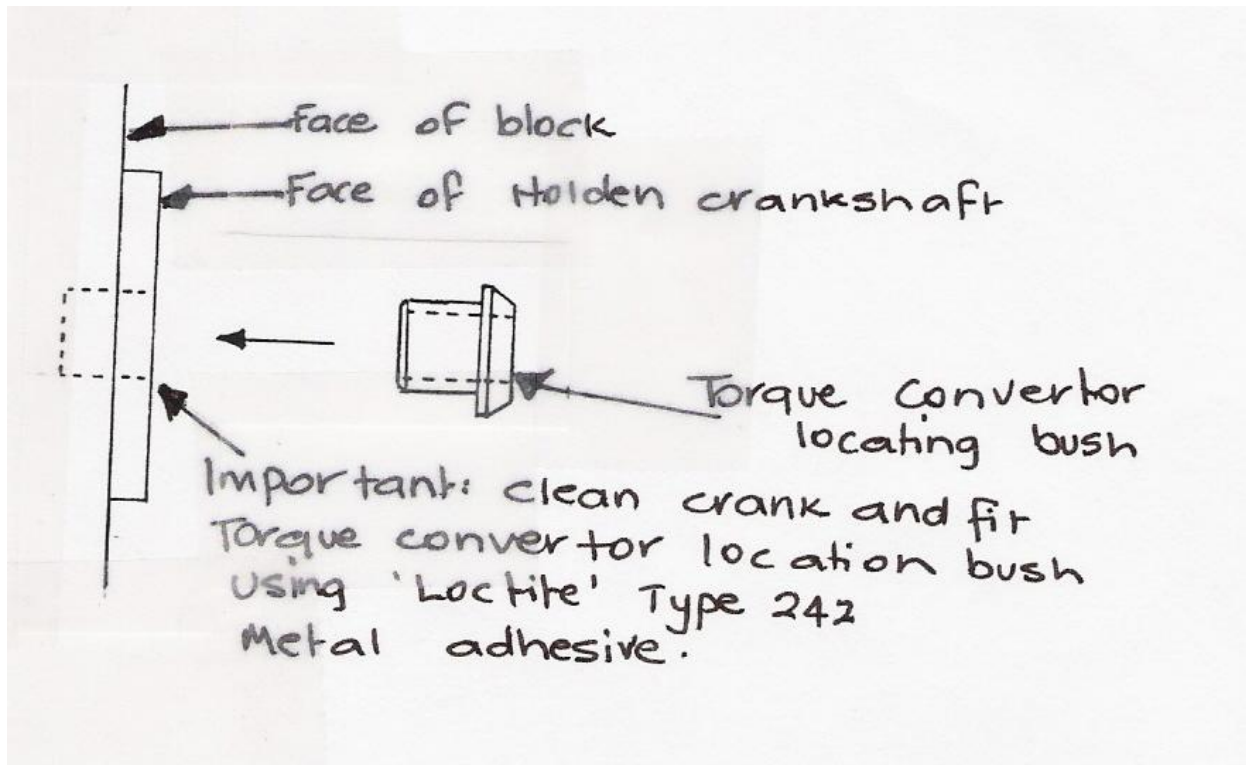 Face of block
Face of Holden crankshaft
Torque convertor
locating bush
Important: clean crank and fit
Torque convertor location bush
using 'Loctite' Type 242
Metal adhesive.